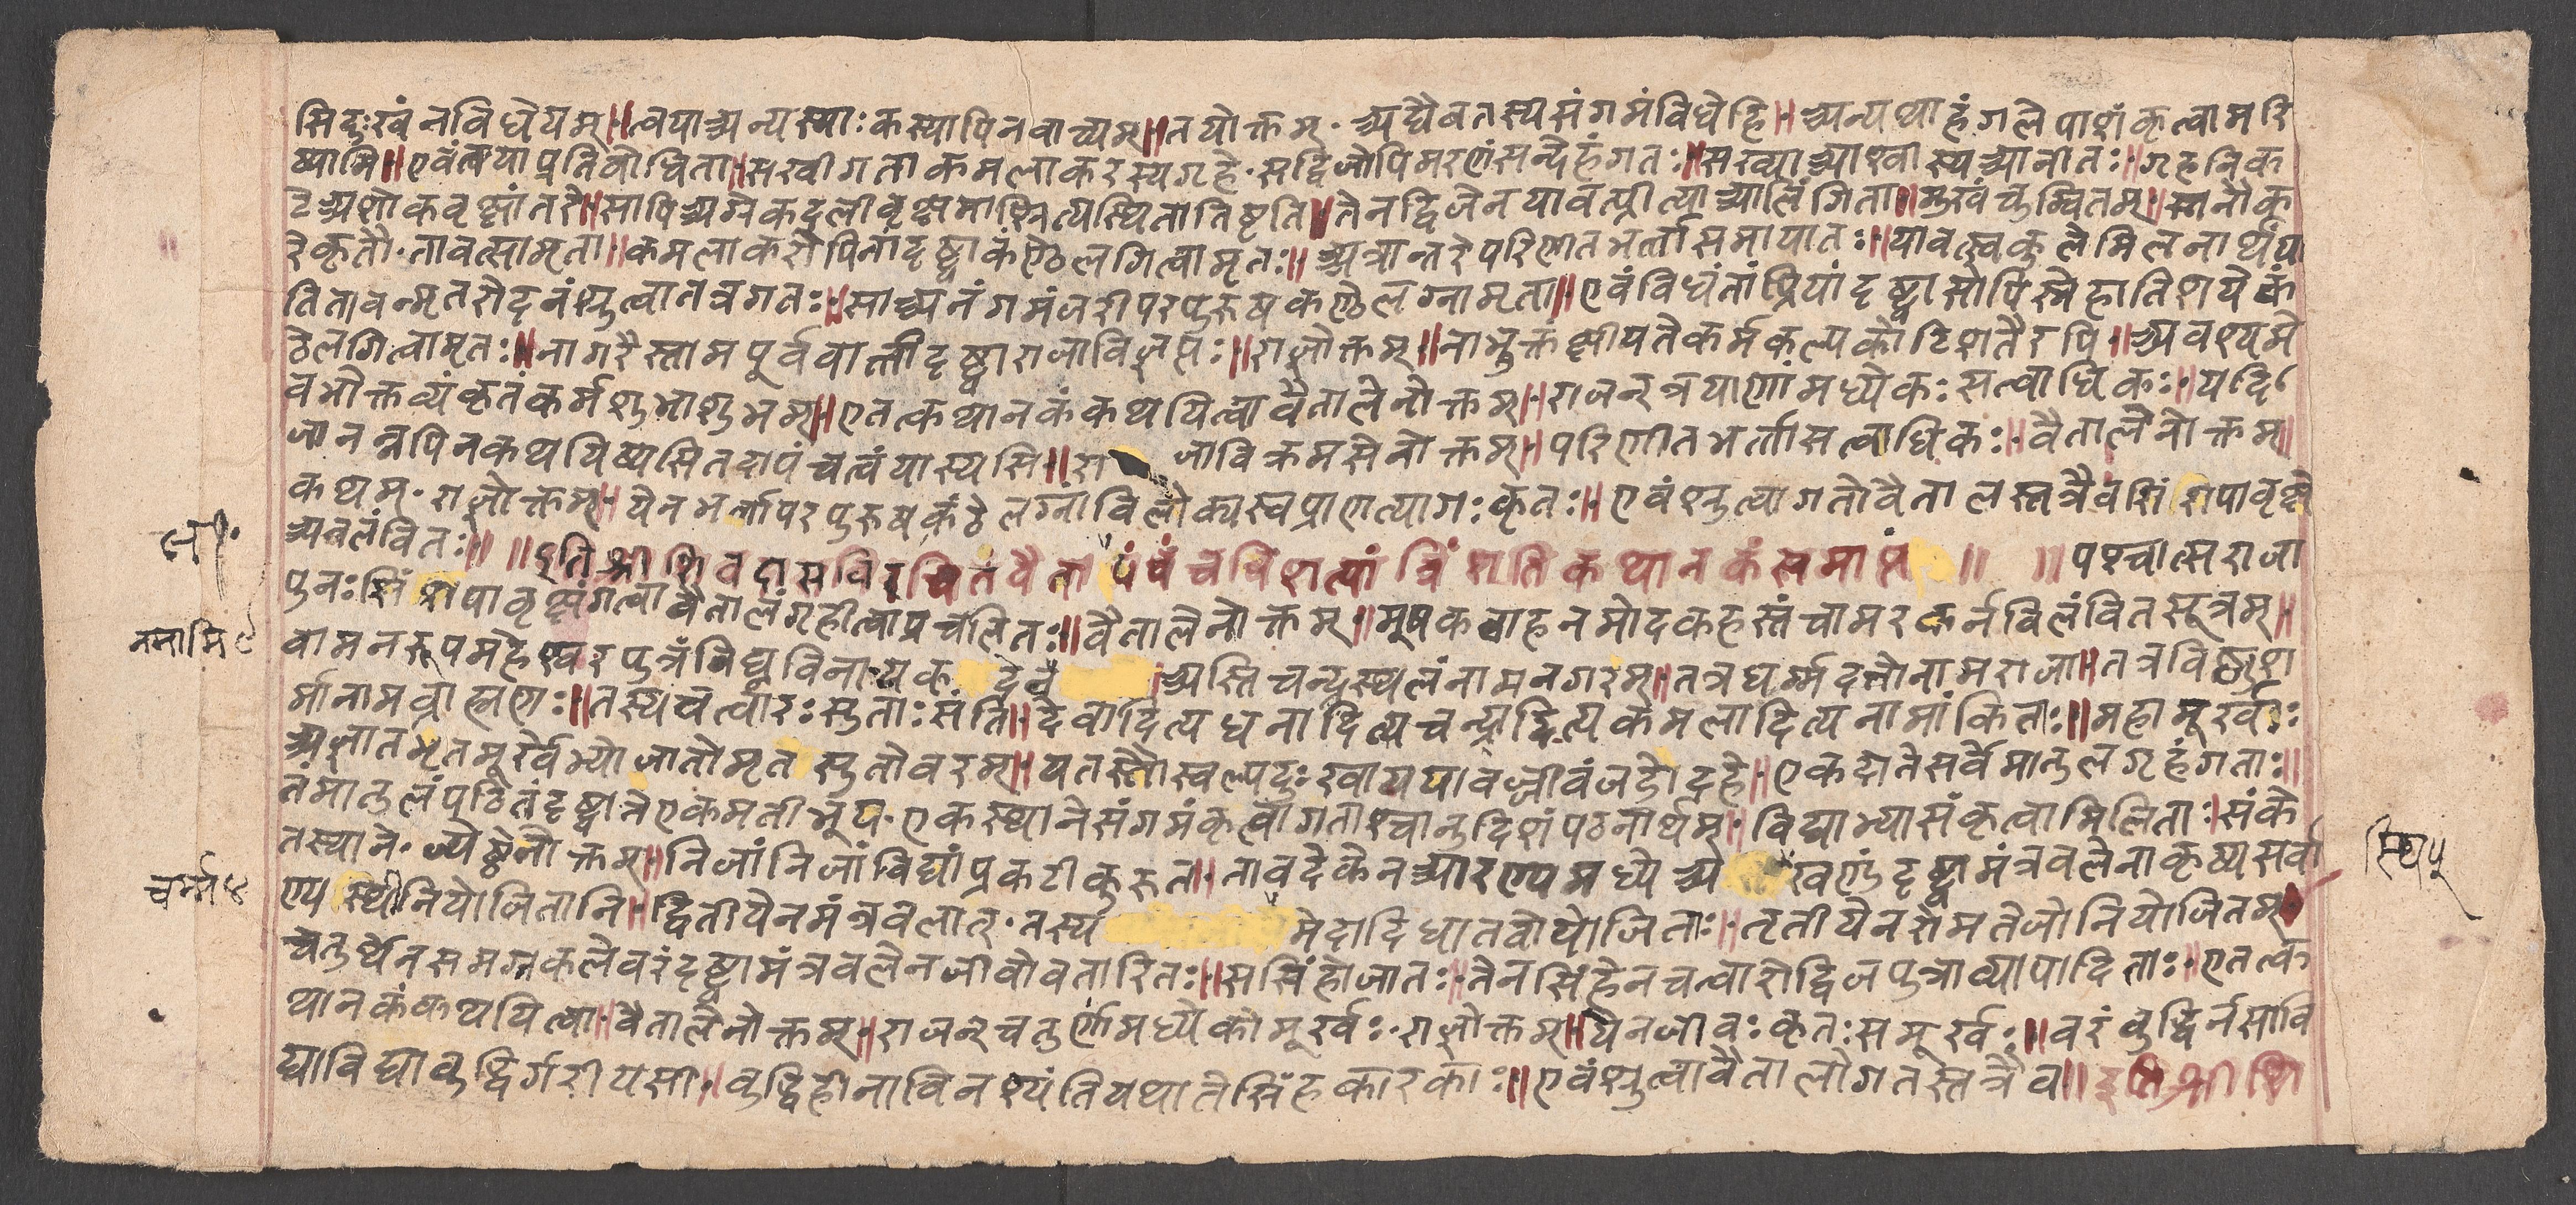 सिदुःखं न विधेयम्॥ त्वया अन्यस्याः कस्यापि न वाच्यम्॥ तयोक्तम्· अद्यैव तस्य संगमं विधेहि॥ अन्यथाहं गले पाशं कृत्वा मरि
ष्यामि॥ एवं तया प्रतिबोधिता॥ सखी गता कमलाकरस्य गृहे· स द्विजोपि मरणसंन्देहं गतः॥ सख्या आश्वास्य आनीतः॥ गृहनिक
टे अशोकवृक्षांतरे॥ सापि अग्रे कदलीवृक्षमाश्रित्य स्थिता तिष्ठति॥ तेन द्विजेन यावत्प्रीत्या आलिंगिता॥ मुखं चुम्बितम्॥ स्तनौ क
रे कृतौ· तावत्सा मृता॥ कमलाकरोपि तां दृष्ट्वा कंण्ठे लगित्वा मृतः॥ अत्रान्तरे परिणीतभर्त्ता समायातः॥ यावत्स्वकुले मिलनार्थं या
ति तावन्मृतरोदनं श्रुत्वा तत्र गतः॥ सा अनंगमंजरी परपुरुषकण्ठे लग्ना मृता॥ एवंविधं तां प्रियां दृष्ट्वा सोपि स्नेहातिशये कं
ठे लगित्वा मृतः॥ नागरैस्तामपूर्ववार्त्तां दृष्ट्वा राजा विज्ञप्तः॥ राज्ञोक्तम्॥ नाभुक्तं क्षीयते कर्म कल्पकोटिशतैरपि॥ अवश्यमे
व भोक्तव्यं कृतं कर्म शुभाशुभम्॥ एतत्कथानकं कथयित्वा वैतालेनोक्तम्॥ राजन्त्रयाणां मध्ये कः सत्वाधिकः॥ यदि
जानन्नपि न कथयिष्यसि तदा पंचत्वं यास्यसि॥ रा जा विक्रमसेनोक्तम्॥ परिणीतभर्त्ता सत्वाधिकः॥ वैतालेनोक्तम्॥
कथम्· राज्ञोक्तम्॥ येन भर्त्ता परपुरुषकंठे लग्नां विलोक्य स्वप्राणत्यागः कृतः॥ एवं श्रुत्वा गतो वैतालस्तत्रैव शिंशिपावृक्षे
अवलंवितः॥ ॥ इति श्रीशिवदासविरचितं वैतापंचविंशत्यां विंशतिकथानकं समाप्तं ॥ ॥ पश्चात्स राजा
पुनः शिंशपावृक्षं गत्वा वैतालं गृहीत्वा प्रचलितः॥ वैतालेनोक्तम्॥ मूषकवाहन मोदकहस्तं चामरकर्न विलंवितसूत्रम्॥
वामनरूप महेश्वरपुत्रं विघ्नविनायक देव अस्ति चन्द्रस्थलं नाम नगरम्॥ तत्र धर्म्मदत्तो नाम राजा॥ तत्र विष्णुश
र्मा नाम व्राह्मणः॥ तस्य चत्वारः सुताः संति॥ देवादित्य धनादित्य चन्द्रादित्य कमलादित्य नामांकिताः॥ महामूर्खाः
अज्ञातमृतमूर्खेभ्यो जातो मृत सुतो वरम्॥ यतस्तौ स्वल्पदुःखाय यावज्जीवं जडो दहे॥ एकदा ते सर्वे मातुलगृहं गताः॥
तं मातुलं पठितं दृष्ट्वा ते एकमती भूय· एकस्थाने संगमं कृत्वा गताश्चातुर्दिशं पठनार्थम्॥ विद्याभ्यासं कृत्वा मिलिताः॥ संके
तस्थाने· ज्येष्ठेनोक्तम्॥ निजां निजां विद्यां प्रकटीकुरुत॥ तावदेकेन आरण्यमध्ये अ खण्डं दृष्ट्वा मंत्रवलेनाकृष्य सर्वा
ण्य स्थी नियोजितानि॥ द्वितीयेन मंत्रवलात्· तस्य मेदादिधातवो योजिताः॥ तृतीयेन रोमतेजो नियोजितम्॥
चतुर्थेन समग्रकलेवरं दृष्ट्वा मंत्रवलेन जीवोवतारितः॥ स सिंहो जातः॥ तेन सिंहेन चत्वारो द्विजपुत्रा व्यापादिताः॥ एतत्क
थानकं कथयित्वा॥ वैतालेनोक्तम्॥ राजन्चतुर्णां मध्ये को मूर्खः· राज्ञोक्तम्॥ येन जीवः कृतः स मूर्खः॥ वरं वुद्धिर्न सा वि
द्या विद्या वुद्धिर्गरीयसी॥ वुद्धिहीना विनश्यंति यथा ते सिंहकारकाः॥ एवं श्रुत्वा वैतालो गतस्तत्रैव॥ इति श्रीशि